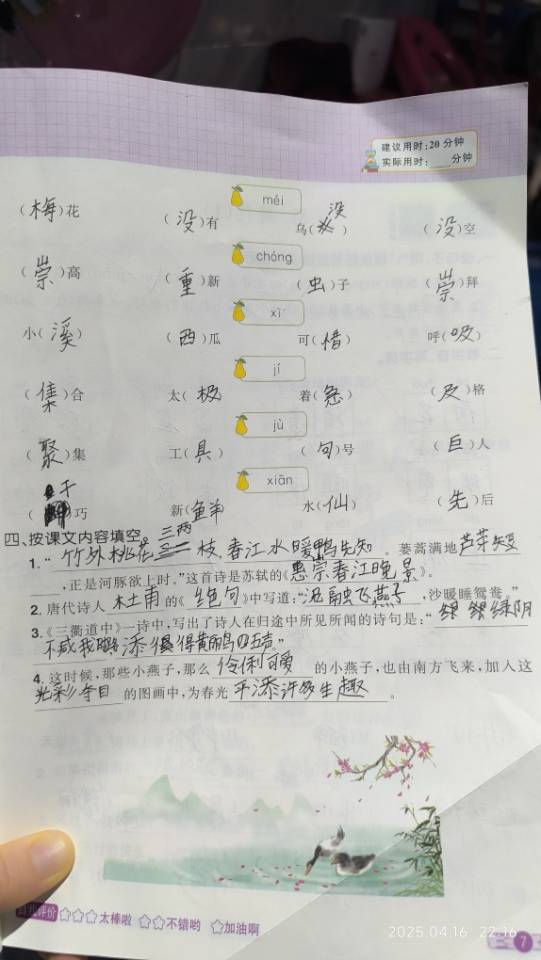 建议用时:20分钟
实际用时: 分钟
méi
(梅)花 (没)有 乌(没) (没)空
chóng
(崇)高 (重)新 (虫)子 (崇)拜
xī
小(溪) (西)瓜 可(惜) 呼(吸)
jí
(集)合 太(极) 着(急) (及)格
jù
(聚)集 工(具) (句)号 (巨)人
xiān
( 巧 新(鲜) 水(仙) (先)后
四、按课文内容填空。
1.“竹外桃花三两枝,春江水暖鸭先知。蒌蒿满地芦芽短
,正是河豚欲上时。”这首诗是苏轼的《惠崇春江晚景》。
2.唐代诗人 的《绝句》中写道:“泥融飞燕子,沙暖睡鸳鸯。”
3.《三衢道中》一诗中,写出了诗人在归途中所见所闻的诗句是:“绿阴
不减 添得黄鹂四五声。”
4.这时候,那些小燕子,那么伶俐可爱的小燕子,也由南方飞来,加入这
光彩夺目的图画中,为春光平添许多生趣。
自我评价 太棒啦 不错哟 加油啊
2025.04.16 22:16
三 7